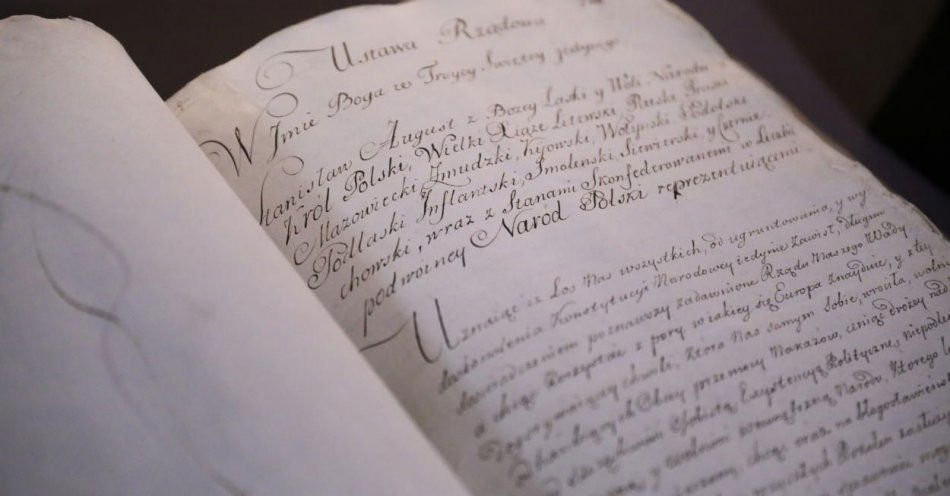 Ustawa Rządowa
W Imie Boga w Troycy Swiętey jedynego
Stanisław August z Bozey Łaski y Woli Narodu
Król Polski, Wielki Xiąże Litewski, Ruski, Pruski
Mazowiecki, Zmudzki, Kijowski, Wołynski, Podolski
Podlaski, Inflantski, Smolenski, Siewierski, y Czernie-
chowski, wraz z Stanami Skonfederowanemi w Liczbie
podwoiney Naród Polski reprezentuiącemi
Uznaiąc iż Los Nas wszystkich, od ugruntowania, y wy
doskonalenia Konstytucyi Narodowey iedynie zawisł, długim
doświadczeniem poznawszy zadawnione Rządu Naszego Wady
a chcąc korzystać z pory, w iakiey się Europa znayduie, y z tey
dogorywaiącey chwili, która Nas samym Sobie wrociła, wolni
od hańbiących Obcey przemocy Nakazów, ceniąc drożey nad
Exystencyą Polityczną, niepodle
Narodu, którego
chcąc oraz na błogosławień
przyszłych Pokoleń zasłuży